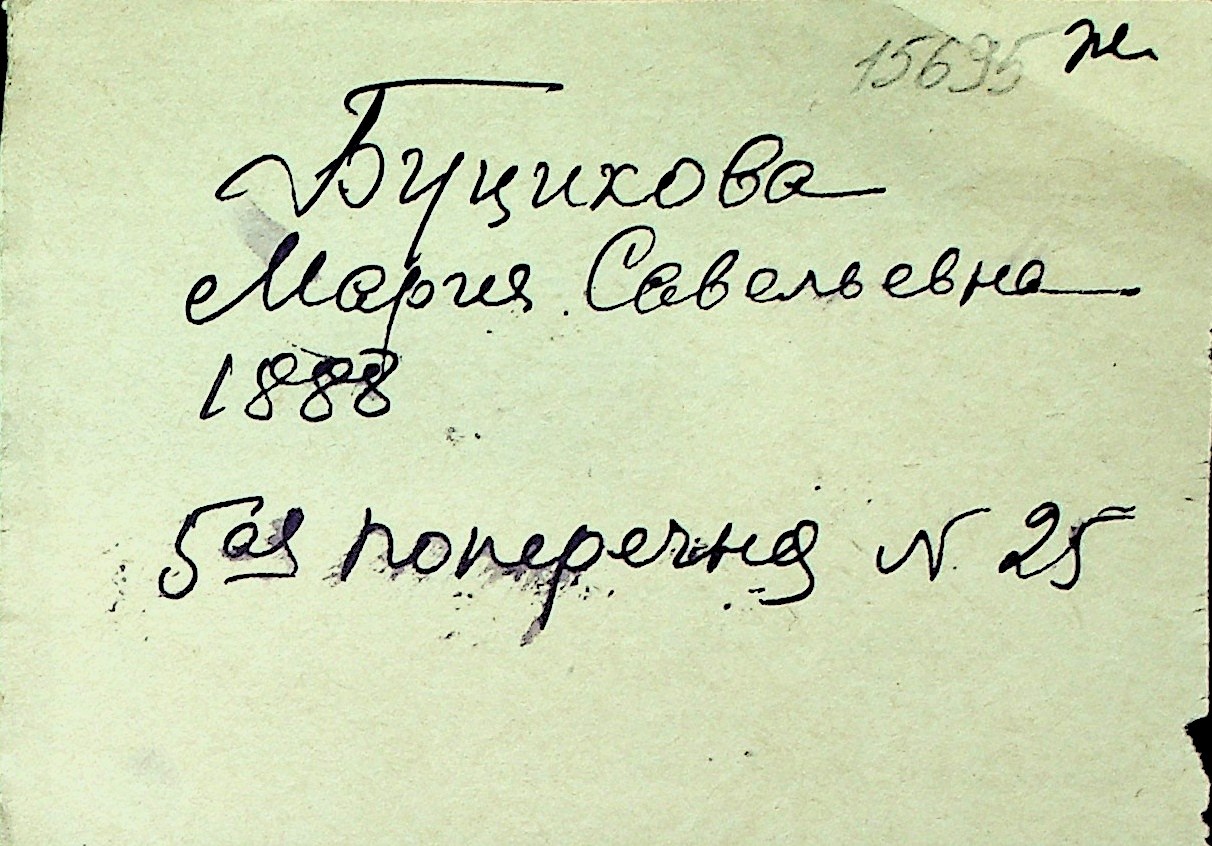 15695 ж
Буцихова
Мария Савельевна
1888
5ая поперечня N 25